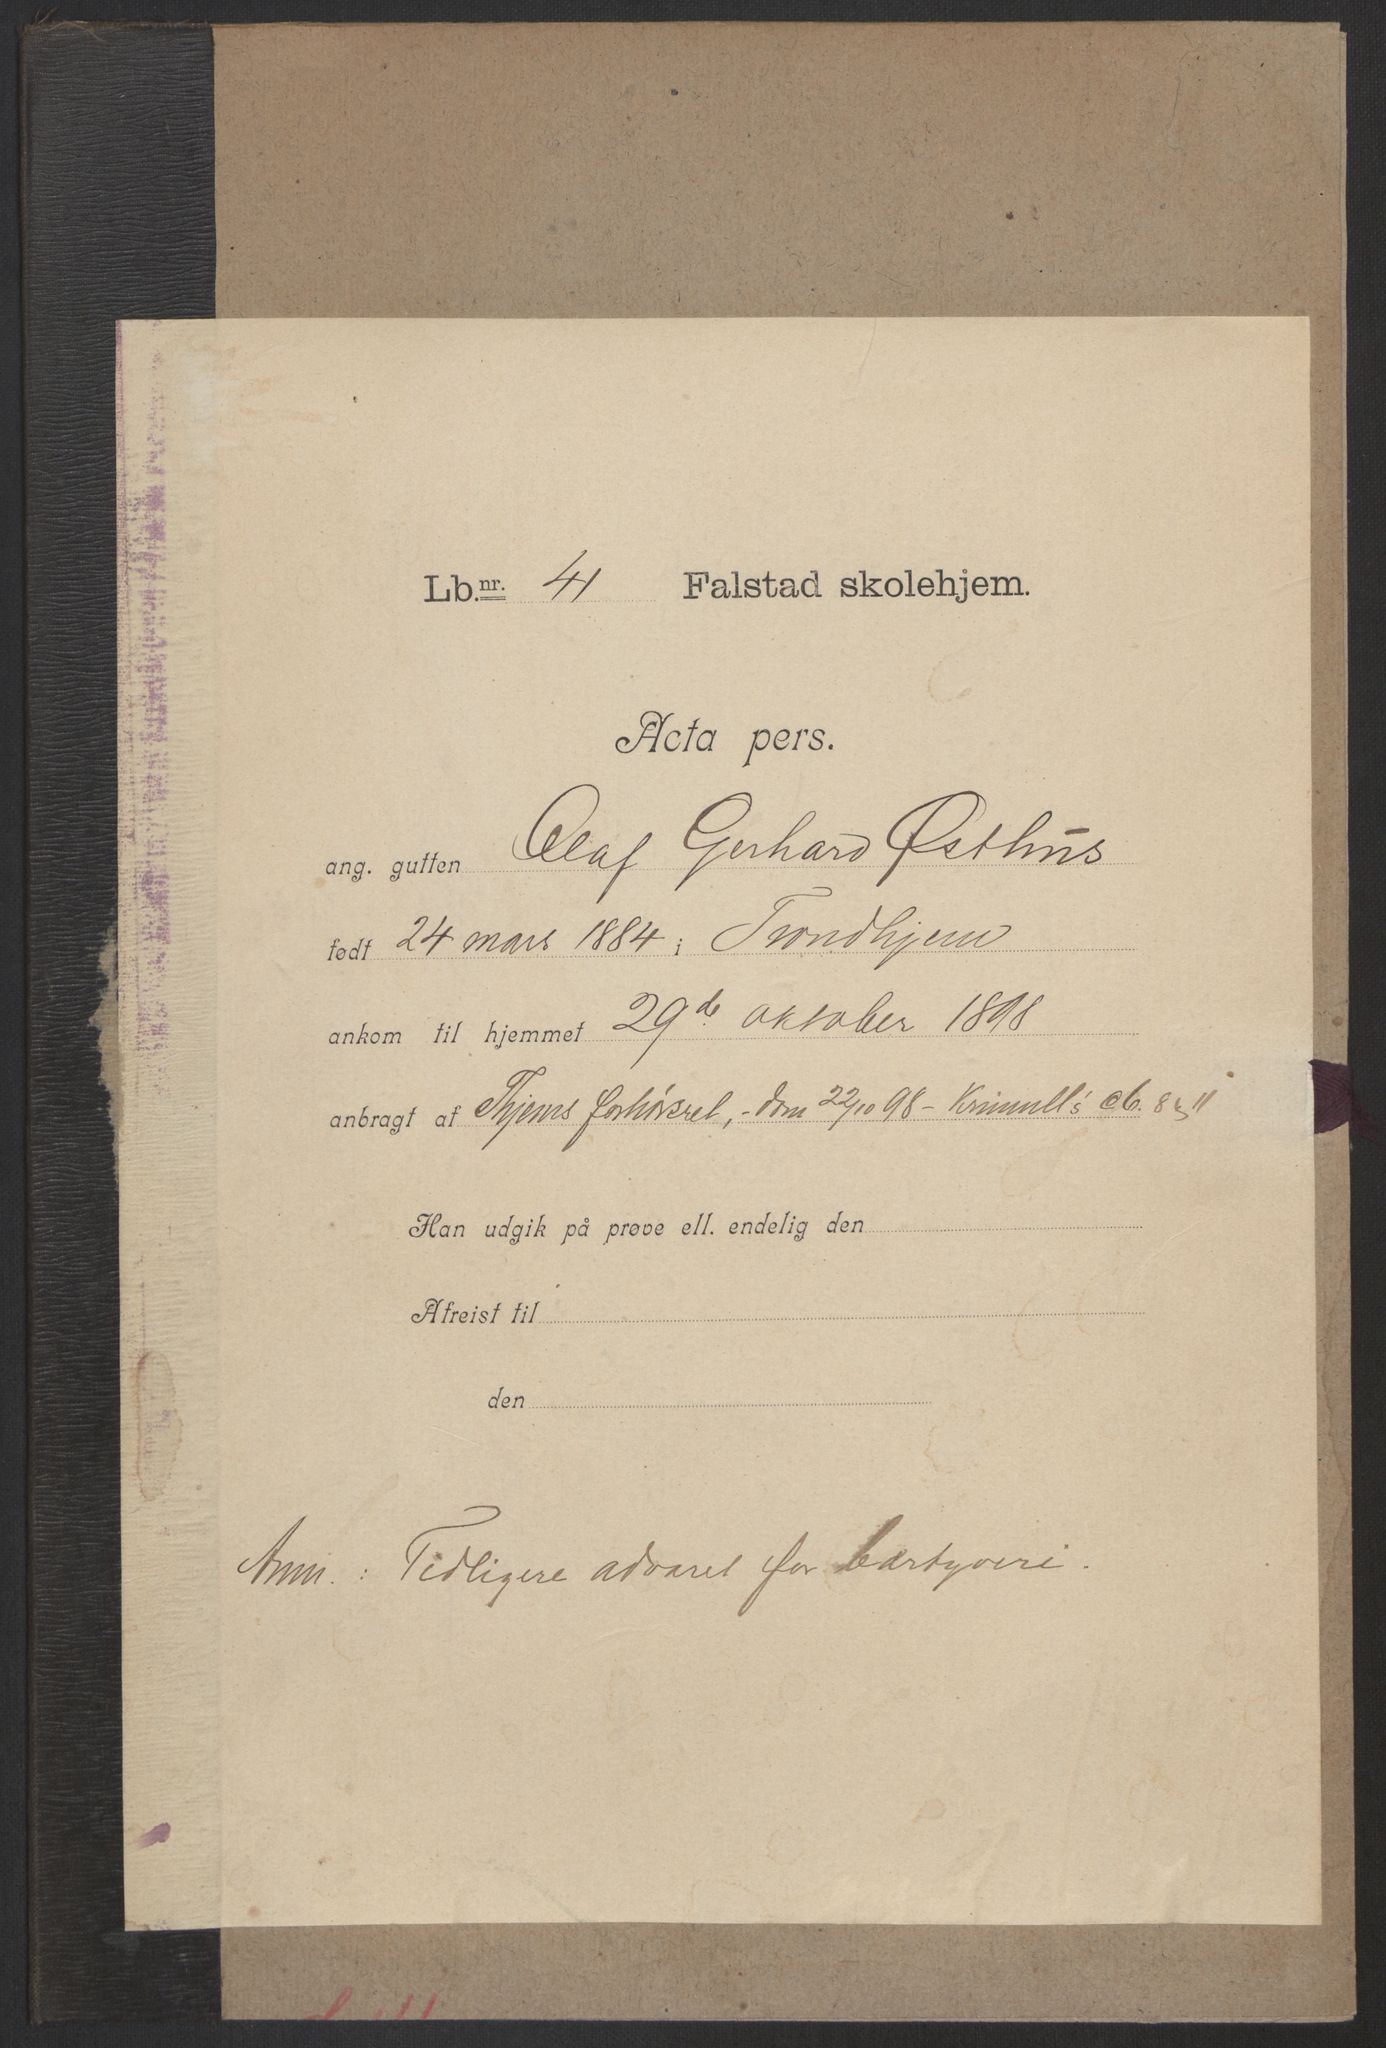 Lb.nr. 41 Falstad skolehjem.
Acta pers.
ang. gutten Olaf Gerhard Østhus
født 24 mars 1884 i Trondhjem
ankom til hjemmet 29de oktober 1898
anbragt af Thjems forhørsret, - dom 22/10 98 - Kriminell's cb. 8 § 11
Han udgik på prøve ell. endelig den
Afreist til
den
Anm. : Tidligere advaret for bærtyveri.